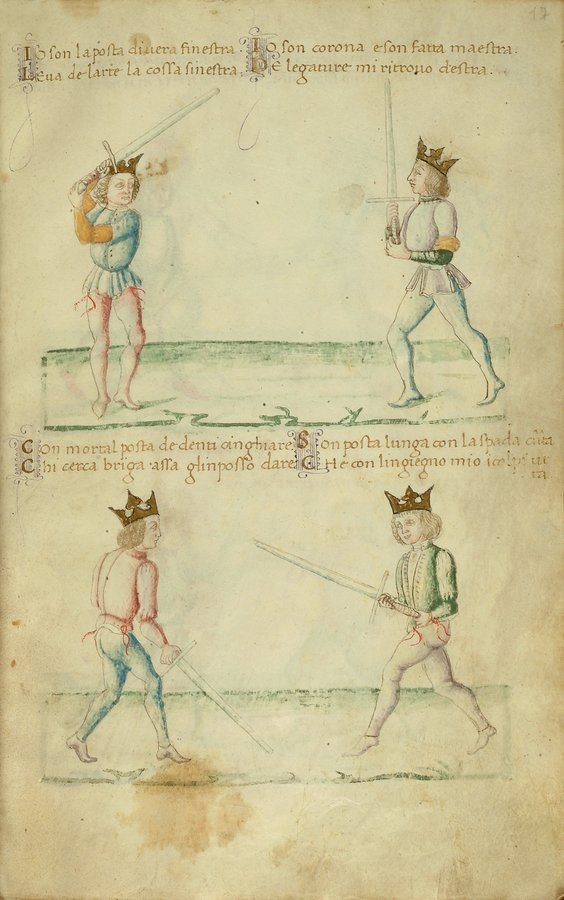 17
IO son la posta diuera finestra.
LEua de larte la cossa sinestra.
IO son corona e son fatta maestra.
DE legature mi ritrouo destra.
COn mortal posta de denti cinghiare
CHi cerca briga assa glinposso dare
SOn posta lunga con la spada
CHe con lingiegno mio